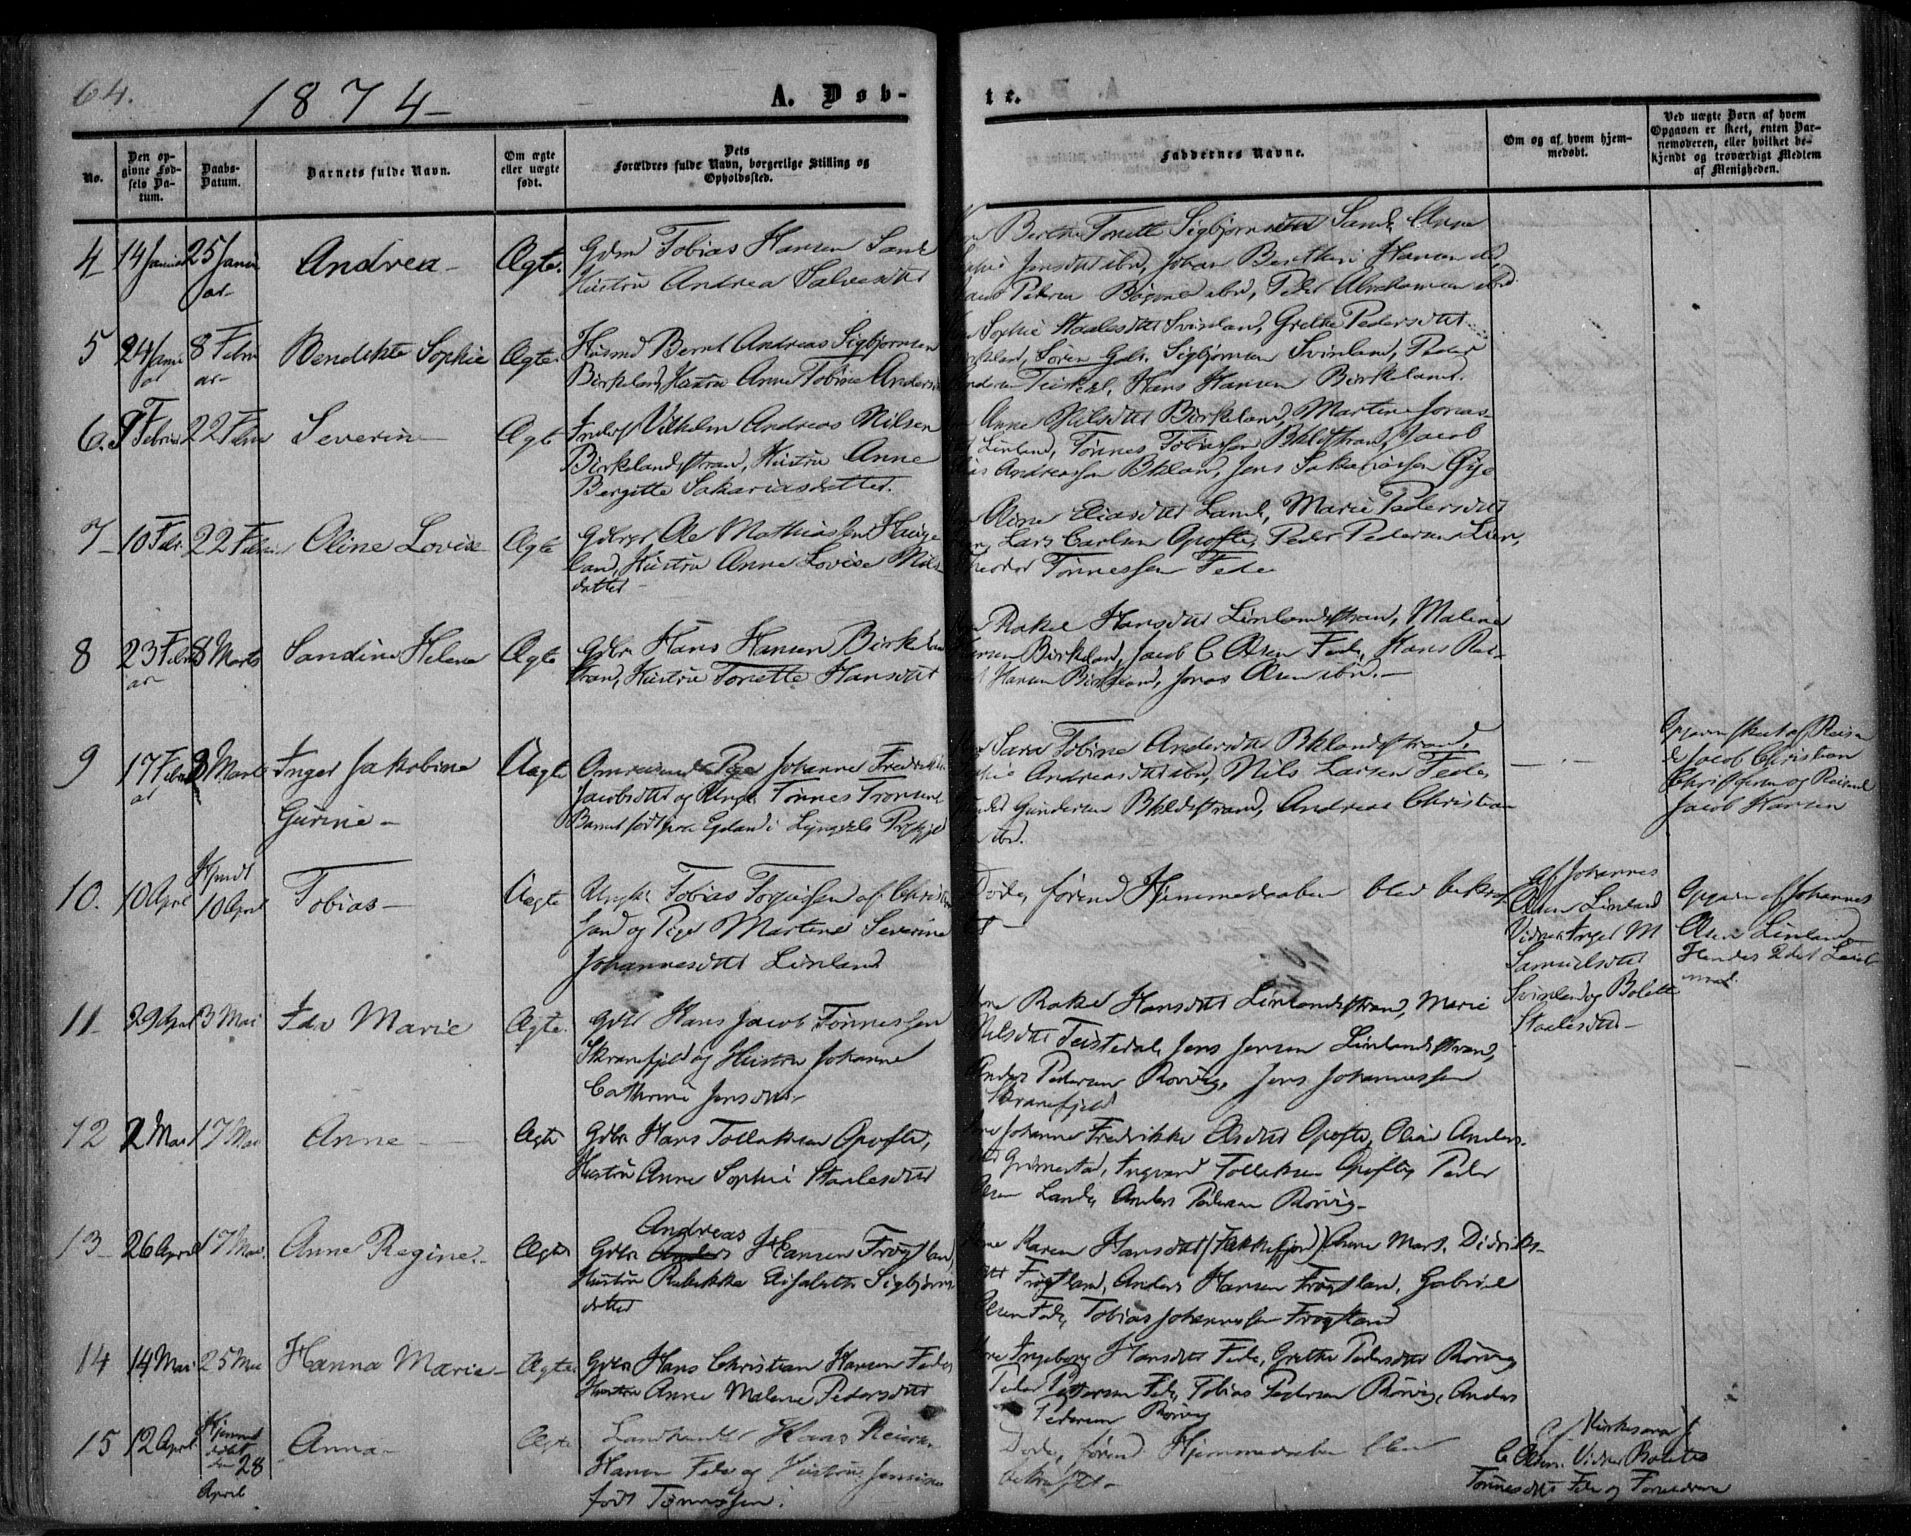 64.
1874
A. Døb-
te.
No.
Den opgivne Fødsels Datum.
Daabs-Datum.
Barnets fulde Navn.
Om ægte eller uægte født.
Dets Forældres fulde Navn, borgerlige Stilling og Opholdssted.
Faddernes Navne.
Om og af hvem hjemmedøbt.
Ved uægte Børn af hvem Opgaven er skeet, enten Barnemoderen, eller hvilket bekjendt og troværdigt Medlem af Menigheden.
4 14 Januar 25 Januar Andrea Ægte.
Gdm Tobias Hansen Sand
Hustru Andrea Salvesdtr
Berthe Tonette Sigbjørnsdtr Sande, Anne
Jensdtr ibd, Johan Berthin Hansen
Pedersen ibd, Peder Abrahamsen ibd
5 24 Januar 8 Februar Bendikte Sophie Ægte.
Husmd Bernt Andreas Sigbjørnsen
Birkeland, Hustru Anne Tobine Anders
Sophie Staalesdtr Svinland, Grethe Pedersdtr
Søren Gab. Sigbjørnsen Svinland, Peder
Hans Hansen Birkeland.
6. 9 Februar 22 Febru Severin Ægte
Vilhelm Andreas Nilsen
Birkelandsstrand, Hustru Anne
Bergitte Sakariasdatter.
Anne Nilsdtr Birkeland, Martine Jonas
Linland, Tønnes Tobiassen Bkldstrand, Jacob
Andreassen Bkland, Jens Sakariassen Gije
7 10 Febr. 22 Febru Oline Lovise Ægte
Ole Mathiassen Hauge
land, Hustru Anne Lovise Nils
datter
Eliasdtr Lande, Marie Pedersdtr
Lars Carlsen Opofte, Peder Pedersen Lien,
Theodor Tønnessen Fede
8 23 Februar 8 Marts Sandine Helene Ægte
Gdbr Hans Hansen Birkeland
strand, Hustru Tonette Hansdtr
Rakel Hansdtr Linlandsstrand, Malene
Birkeland, Jacob C Olsen Fede, Hans Rei-
Hansen Birkeland, Jonas Olsen ibd.
9 17 Februar 8 Marts Inger Jakobine Gurine Uægte
Pige Johanne Fredrikke
Jacobsdtr og Ungk. Tønnes Tronsen
Barnet født paa Egeland i Lyngdals Præstgjeld
Sara Tobine Andersdtr Bklandsstrand,
Andreasdtr ibd, Nils Larsen Fede,
Gundersen Bkldstrand, Andreas Christian
ibd.
Opgaven skeet af
Jacob Christian
og
Jacob Hansen
10. 10 April Hjmdt 10 April Tobias Uægte
Ungk. Tobias Torjussen af Christian
sand og Pige Martine Severine
Johannesdtr Linland
Døde, førend Hjemmedaaben blev bekræf
tet
af Johannes
Olsen Linland
Vidner Inger M
Samuelsdtr
Svinland og Bolette
Staalesdtr
Opgave af Johannes
Olsen Linland
Hendes 2det Leier
maal.
11 29 April 3 Mai Ida Marie Ægte.
Gdbr Hans Jacob Tønnessen
Skranefjeld og Hustru Johanne
Cathrine Jensdtr
Rakel Hansdtr Linlandsstrand, Marie
Nilsdtr Teistedal, Jens Jensen Linlandsstrand,
Anders Pedersen Rørvig, Jens Johannessen
Skranefjeld
12 2 Mai 17 Mai Anne Ægte
Gdbr Hans Tolleksen Opofte,
Hustru Anne Sophie Staalesdtr
Johanne Fredrikke Olsdtr Opofte, Oline Anders-
Grimestad, Ingvard Tolleksen Opofte, Peder
Olsen Lande, Anders Pedersen Rørvig
13 26 April 17 Mai Anne Regine Ægte
Andreas
Gdbr Hansen Frøytland,
Hustru Rebekka Elisabeth Sigbjørns
datter
Karen Hansdtr (Fækkefjord), Anne Mart. Didriks-
Frøytland, Anders Hansen Frøytland, Gabriel
Olsen Fede, Tobias Johannessen Frøytland
14 14 Mai 25 Mai Hanna Marie Ægte
Gdbr Hans Christian Hansen Fede,
Hustru Anne Malene Pedersdtr
Ingeborg Hansdtr Fede, Grethe Pedersdtr Rørvig
Peder Pettersen Fede, Tobias Pedersen Rørvig, Anders
Pedersen Rørvig
15 12 April Hjemmedøbt den 28 April Anna Ægte
Landhandler Hans Reinert
Hansen Fede og Hustru
født Tønnessen.
Døde, førend Hjemmedaaben blev
bekræftet
af Kirkesanger
C Olsen. Vidner Bolette
Tønnesdtr Fede og Forældrene